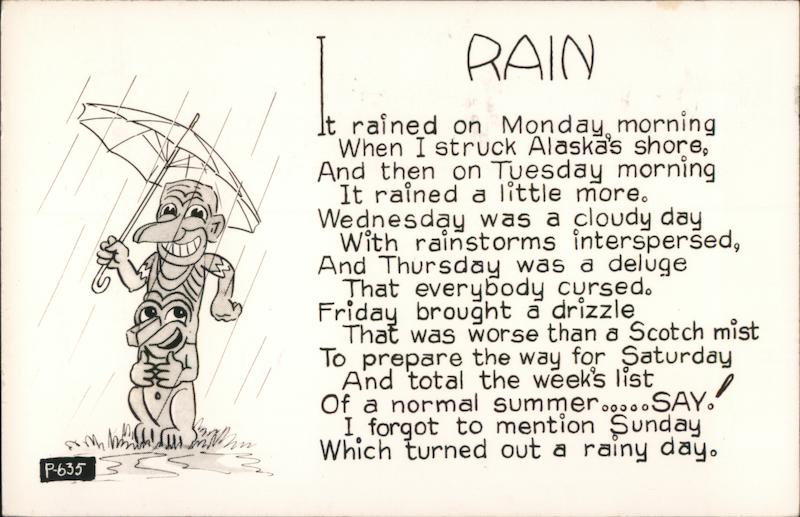 RAIN
It rained on Monday, morning
When I struck Alaska's shore,
And then on Tuesday morning
It rained a little more.
Wednesday was a cloudy day
With rainstorms interspersed,
And Thursday was a deluge
That everybody cursed.
Friday brought a drizzle
That was worse than a Scotch mist
To prepare the way for Saturday
And total the week's list
Of a normal summer.....SAY!
I forgot to mention Sunday
Which turned out a rainy day.
P-635